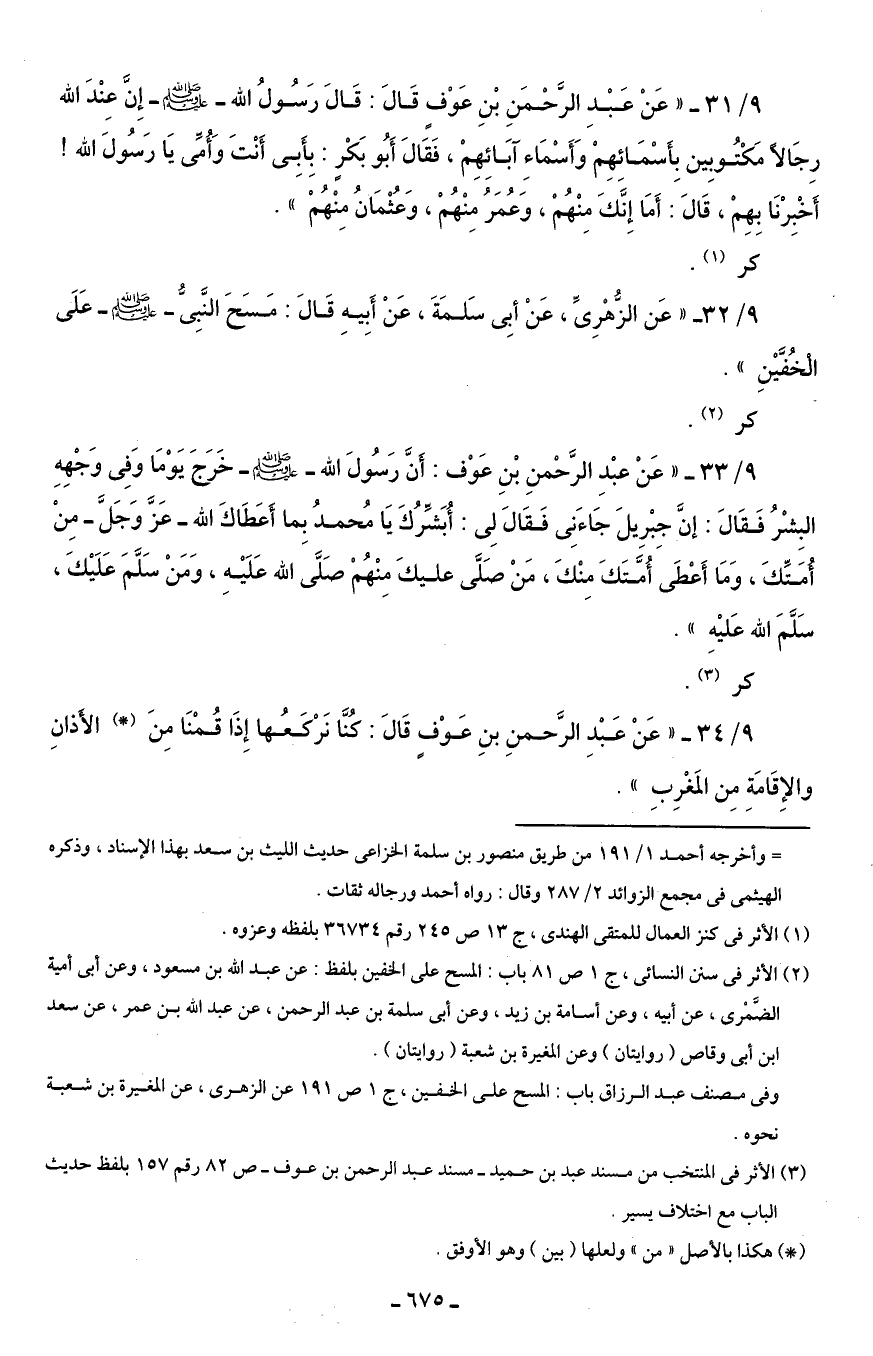 ٩/ ٣١ ـ « عَنْ عَبْدِ الرَّحْمَنِ بْنِ عَوْفٍ قَالَ : قَالَ رَسُولُ الله ـ ﷺ ـ إِنَّ عِنْدَ الله
رِجَالاً مَكْتُوبين بِأَسْمَائِهِمْ وأَسْمَاءِ آبَائِهِمْ ، فَقَالَ أَبُو بَكْرٍ : بِأَبِى أَنْتَ وَأُمِّى يَا رَسُولَ الله !
أَخْبِرْنَا بِهِمْ ، قَالَ : أَمَا إِنَّكَ مِنْهُمْ ، وَعُمَرُ مِنْهُمْ ، وَعُثْمَانُ مِنْهُمْ » .
كر (١) .
٩/ ٣٢ـ « عَن الزُّهْرِىِّ ، عَنْ أَبِى سَلَمةَ ، عَنْ أَبِيهِ قَالَ : مَسَحَ النَّبِىُّ ـ ﷺ ـ عَلَى
الْخُفَّيْنِ » .
كر (٢) .
٩/ ٣٣ ـ « عَنْ عبْدِ الرَّحْمنِ بْنِ عَوْف : أَنَّ رَسُولَ الله ـ ﷺ ـ خَرَجَ يَوْمًا وَفِى وَجْهِهِ
البِشْرُ فَقَالَ : إِنَّ جِبْرِيلَ جَاءَنِى فَقَالَ لِى : أُبَشِّرُكَ يَا مُحمدُ بِما أَعْطَاكَ الله ـ عَزَّ وَجَلَّ ـ مِنْ
أُمَتِّكَ ، وَمَا أَعْطَى أُمَّتَكَ مِنْكَ ، مَنْ صَلَّى عليكَ مِنْهُمْ صَلَّى الله عَلَيْهِ ، وَمَنْ سَلَّمَ عَلَيْكَ ،
سَلَّمَ الله عَلَيْهِ » .
كر (٣) .
٩/ ٣٤ ـ « عَنْ عَبْدِ الرَّحمنِ بنِ عَوْفٍ قَالَ : كُنَّا نَرْكَعُها إِذَا قُمْنَا مِنَ (*) الأَذانِ
والإِقَامَةِ مِن المَغْرِبِ » .
= وأخرجه أحمد ١/ ١٩١ من طريق منصور بن سلمة الخزاعى حديث الليث بن سعد بهذا الإسناد ، وذكره
الهيثمى فى مجمع الزوائد ٢/ ٢٨٧ وقال : رواه أحمد ورجاله ثقات .
(١) الأثر فى كنز العمال للمتقى الهندى ، ج ١٣ ص ٢٤٥ رقم ٣٦٧٣٤ بلفظه وعزوه .
(٢) الأثر فى سنن النسائى ، ج ١ ص ٨١ باب : المسح على الخفين بلفظ : عن عبد الله بن مسعود ، وعن أبى أمية
الضَّمْرى ، عن أبيه ، وعن أسامة بن زيد ، وعن أبى سلمة بن عبد الرحمن ، عن عبد الله بن عمر ، عن سعد
ابن أبى وقاص ( روايتان ) وعن المغيرة بن شعبة ( روايتان ) .
وفى مصنف عبد الرزاق باب : المسح على الخفين ، ج ١ ص ١٩١ عن الزهرى ، عن المغيرة بن شعبة
نحوه .
(٣) الأثر فى المنتخب من مسند عبد بن حميد ـ مسند عبد الرحمن بن عوف ـ ص ٨٢ رقم ١٥٧ بلفظ حديث
الباب مع اختلاف يسير .
(*) هكذا بالأصل « من » ولعلها ( بين ) وهو الأوفق .
ـ ٦٧٥ ـ